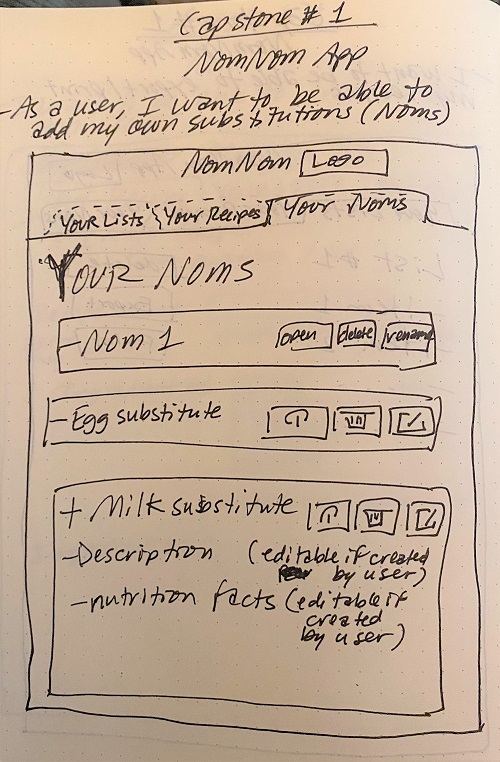 Capstone # 1
NomNom App
-As a user, I want to be able to
add my own substitutions (Noms)
NomNom Logo
Your Lists Your Recipes Your Noms
Your Noms
-Nom 1 open delete rename
-Egg substitute
+ Milk substitute
-Description (editable if created
by user)
-nutrition facts (editable if
created
by user)